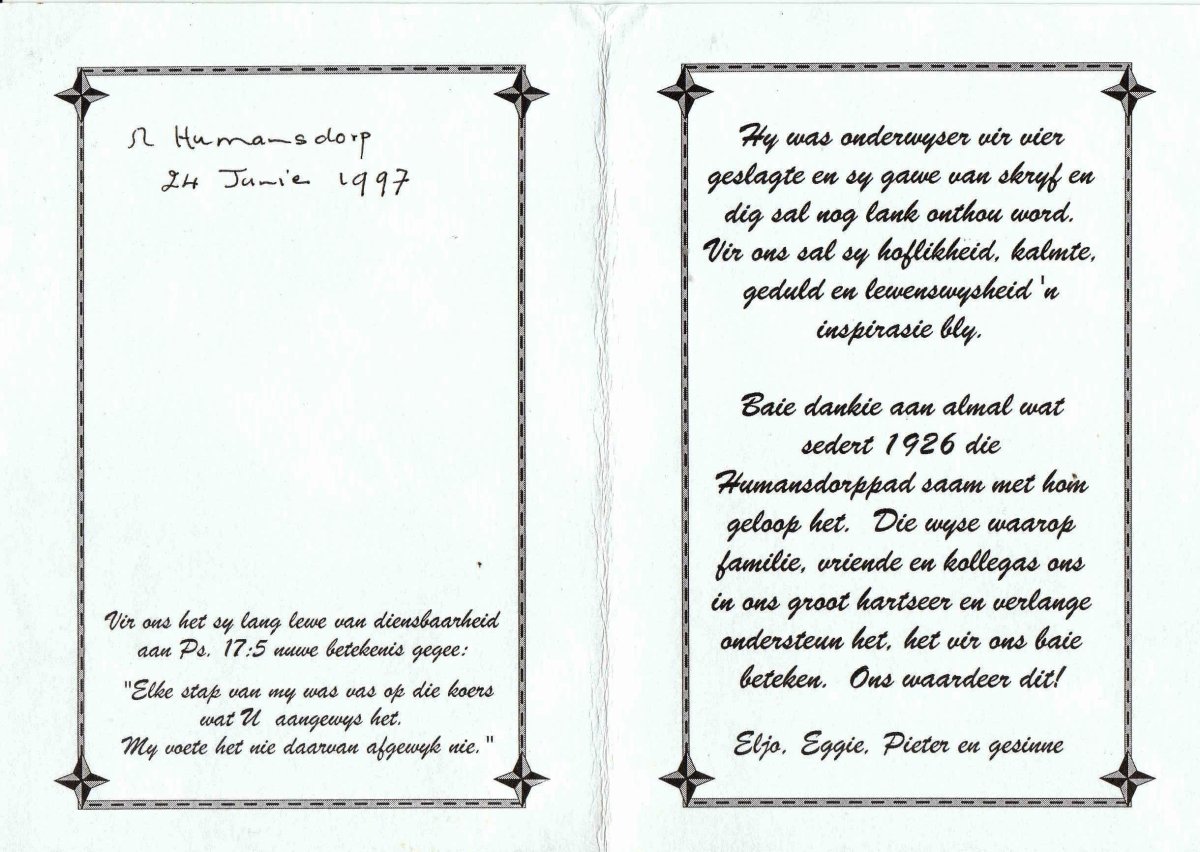 Humansdorp
24 Junie 1997
Vir ons het sy lang lewe van diensbaarheid
aan Ps. 17:5 nuwe betekenis gegee:
"Elke stap van my was vas op die koers
wat U aangewys het.
My voete het nie daarvan afgewyk nie."
Hy was onderwyser vir vier
geslagte en sy gawe van skryf en
dig sal nog lank onthou word.
Vir ons sal sy hoflikheid, kalmte,
geduld en lewenswysheid 'n
inspirasie bly.
Baie dankie aan almal wat
sedert 1926 die
Humansdorppad saam met hom
geloop het. Die wyse waarop
familie, vriende en kollegas ons
in ons groot hartseer en verlange
ondersteun het, het vir ons baie
beteken. Ons waardeer dit!
Eljo, Eggie, Pieter en gesinne